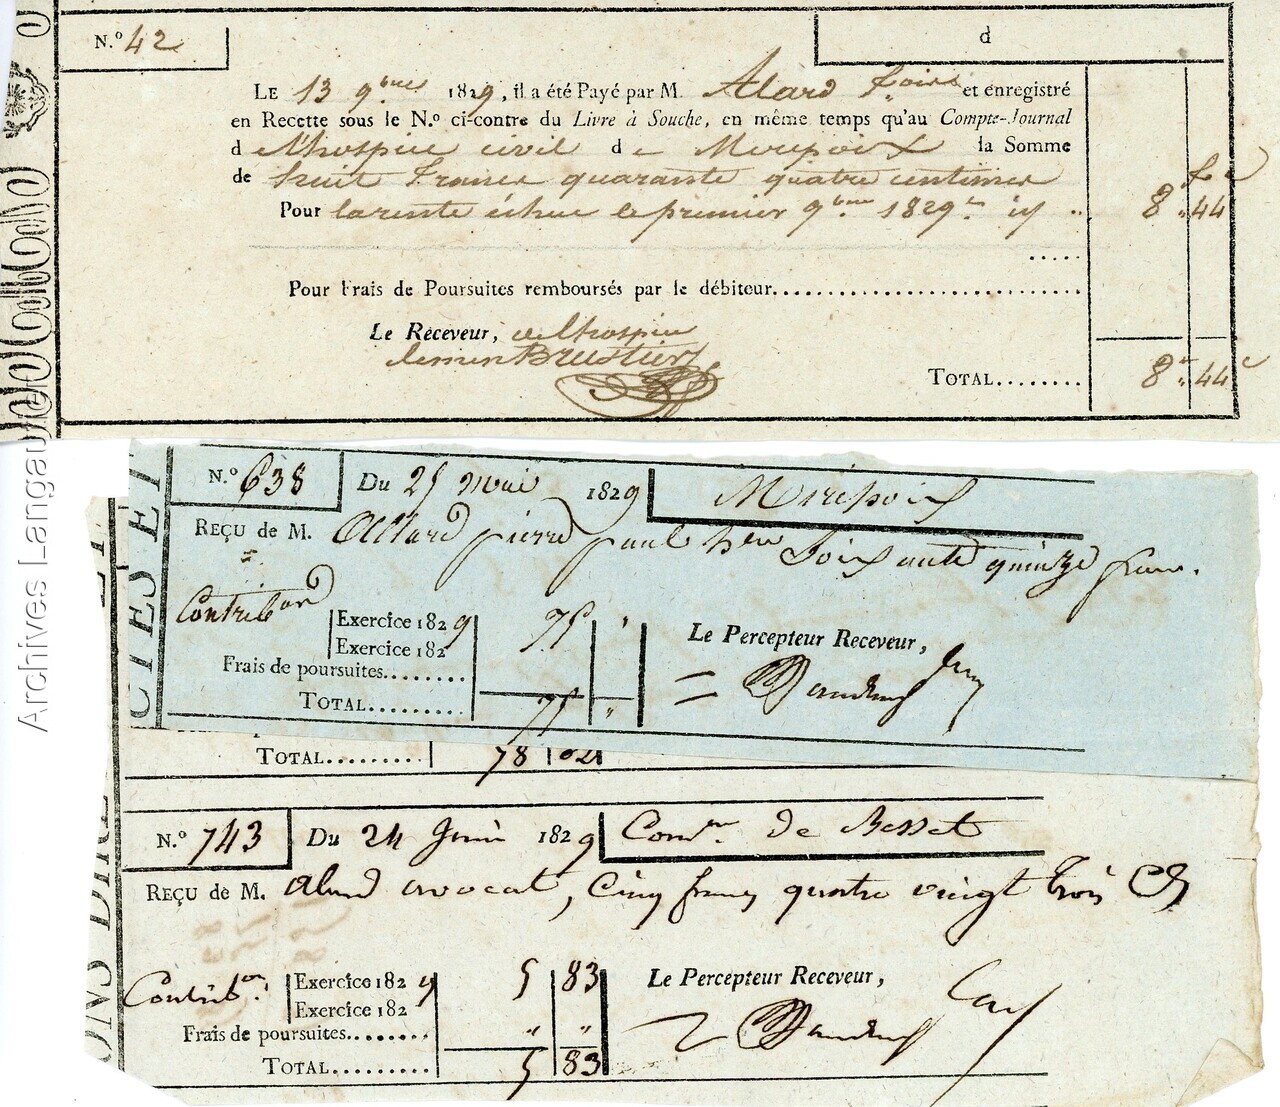 N.º 42
d
LE 13 9bres 1829, il a été Payé par M. Alard et enregistré
en Recette sous le N.º ci-contre du Livre à Souche, en même temps qu'au Compte-Journal
d e l'hospice civil de Mirepoix la Somme
de huit francs quarante quatre centimes
f c
Pour la rente échue le premier 9bre 1829 8 44
Pour Frais de Poursuites remboursés par le débiteur
Le Receveur, de l'hospice
TOTAL 8 44 c
Archives Langau
CTES ET
N.º 638 Du 25 mai 1829 Mirepoix
REÇU de M. Allard pierre paul soixante quinze franc.
Contribon
Exercice 1829 75 "
Exercice 182
Frais de poursuites
TOTAL 75 "
Le Percepteur Receveur,
TOTAL 78 02
ONS DIRE
N.º 743 Du 24 Juin 1829 Comne de Besset
REÇU de M. Alard avocat, Cinq francs quatre vingt trois Cs
Contribon
Exercice 1829 5 83
Exercice 182
Frais de poursuites " "
TOTAL 5 83
Le Percepteur Receveur,